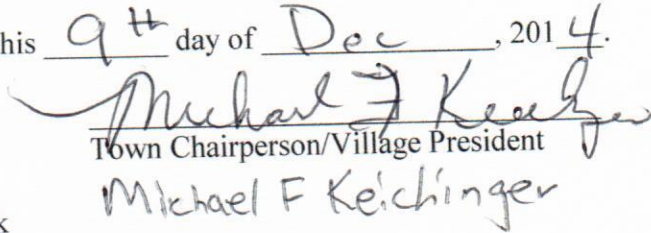 his 9th day of Dec, 2014.
Michael F Kei
Town Chairperson/Village President
Michael F Keichinger
k